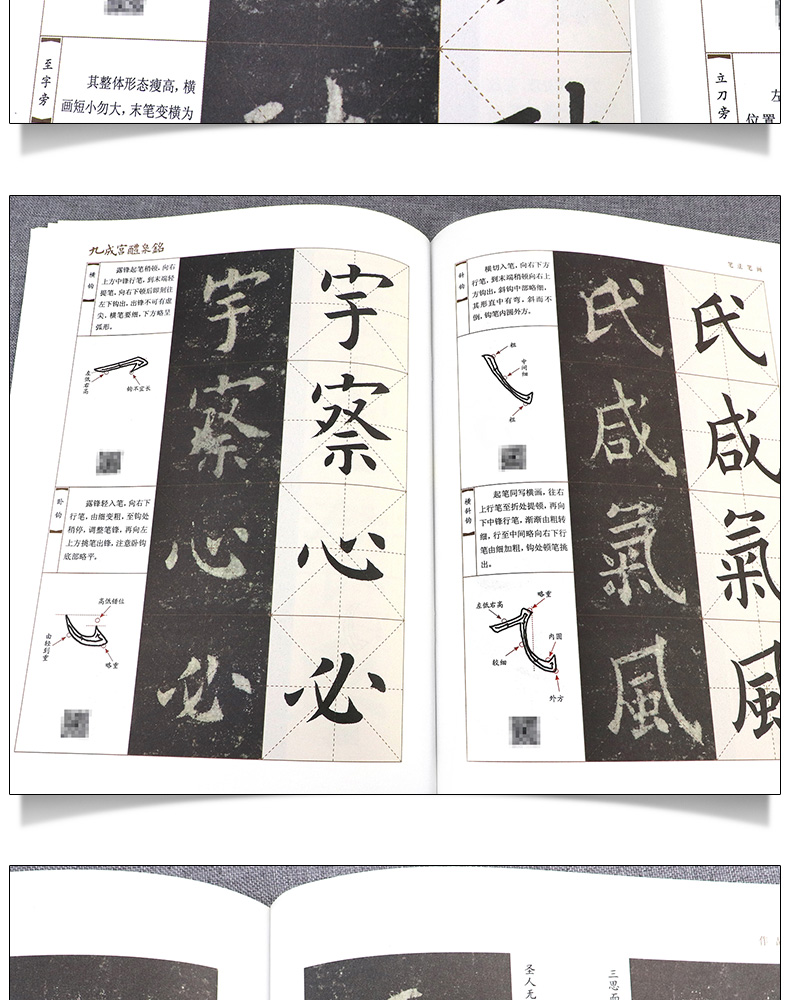 至字旁
其整体形态瘦高，横
画短小勿大，末笔变横为
立刀旁
左
位置
九成宫醴泉銘
横钩
露锋起笔稍顿，向右
上方中锋行笔，到末端轻
提笔，向右下顿后即刻往
左下钩出，出锋不可有虚
尖，横笔要细，下方略呈
弧形。
左低右高
钩不宜长
宇
宇
察
察
卧钩
露锋轻入笔，向右下
行笔，由细变粗，至钩处
稍停，调整笔锋，再向左
上方挑笔出锋，注意卧钩
底部略平。
高低错位
由轻到重
略重
心
心
必
必
笔法笔画
斜钩
横切入笔，向右下方
行笔，到末端稍顿向右上
方钩出，斜钩中部略细，
其形直中有弯，斜而不
倒，钩笔内圆外方。
粗
中间细
粗
氏
氏
咸
咸
横斜钩
起笔同写横画，往右
上行笔至折处提顿，再向
下中锋行笔，渐渐由粗转
细，行至中间略向右下行
笔由细加粗，钩处顿笔挑
出。
左低右高
略重
内圆
较细
外方
氣
氣
風
風
作品
圣人无
三思而